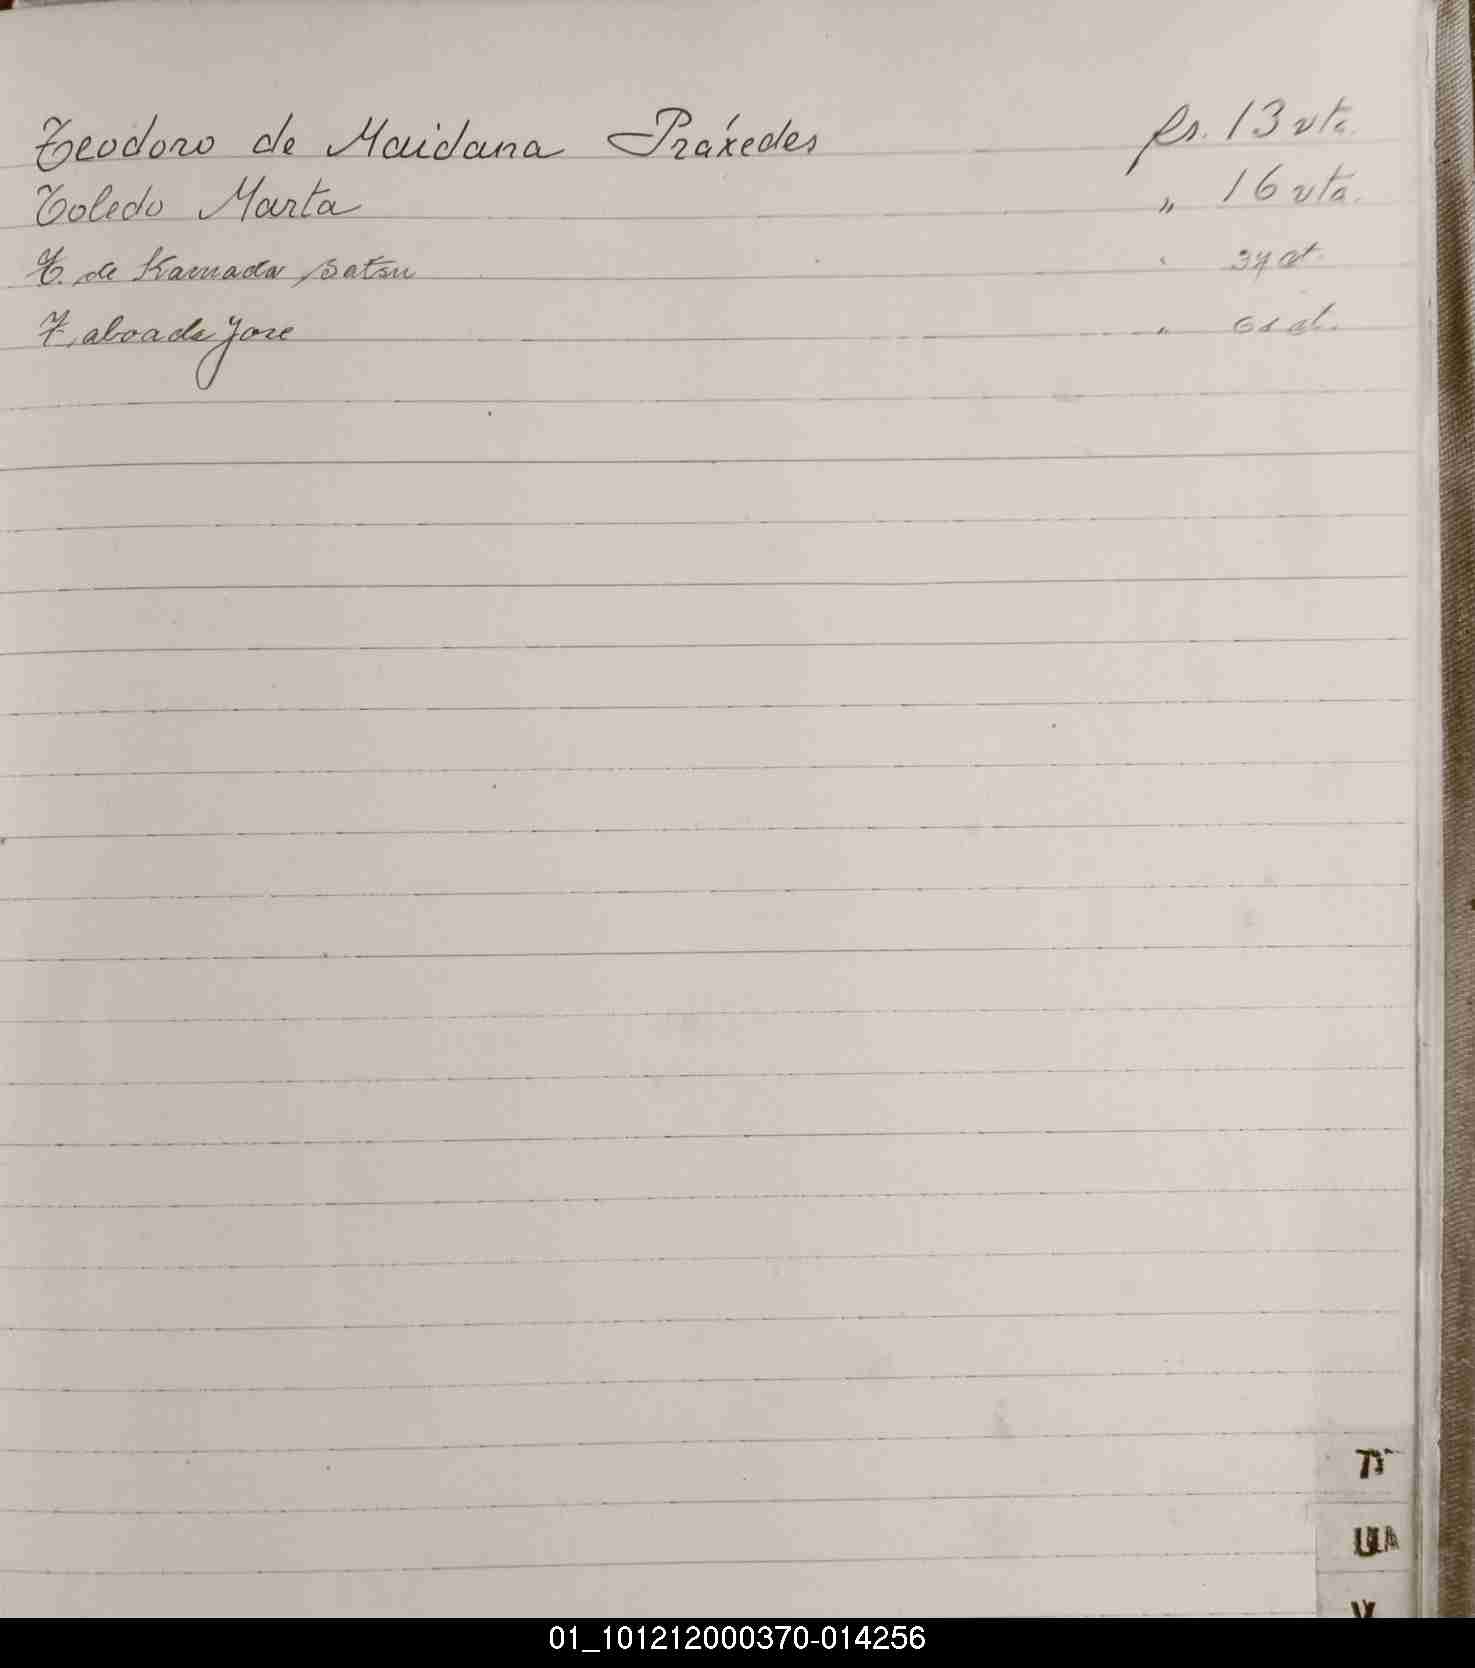 Teodoro de Maidana Práxedes fs. 13 vta.
Toledo Marta " 16 vta.
T. de Kamada Satsu " 37 vt.
Taboada Jose "
T
U
V
01_101212000370-014256